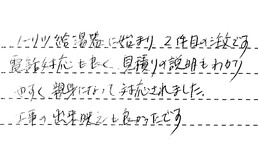 ノーリツ給湯器に始まり2件目の注文です
電話対応も良く、見積りの説明もわかり
やすく親身になって対応されました。
工事の出来映えも良かったです